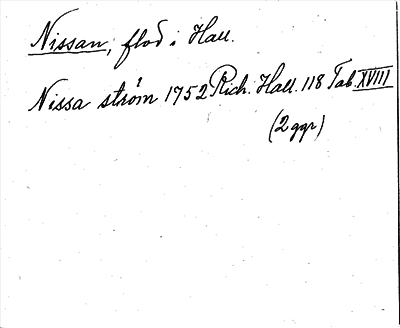 Nissan, flod i Hall.
Nissa ström 1752 Rich. Hall. 118 Tab. XVIII
(2 ggr)